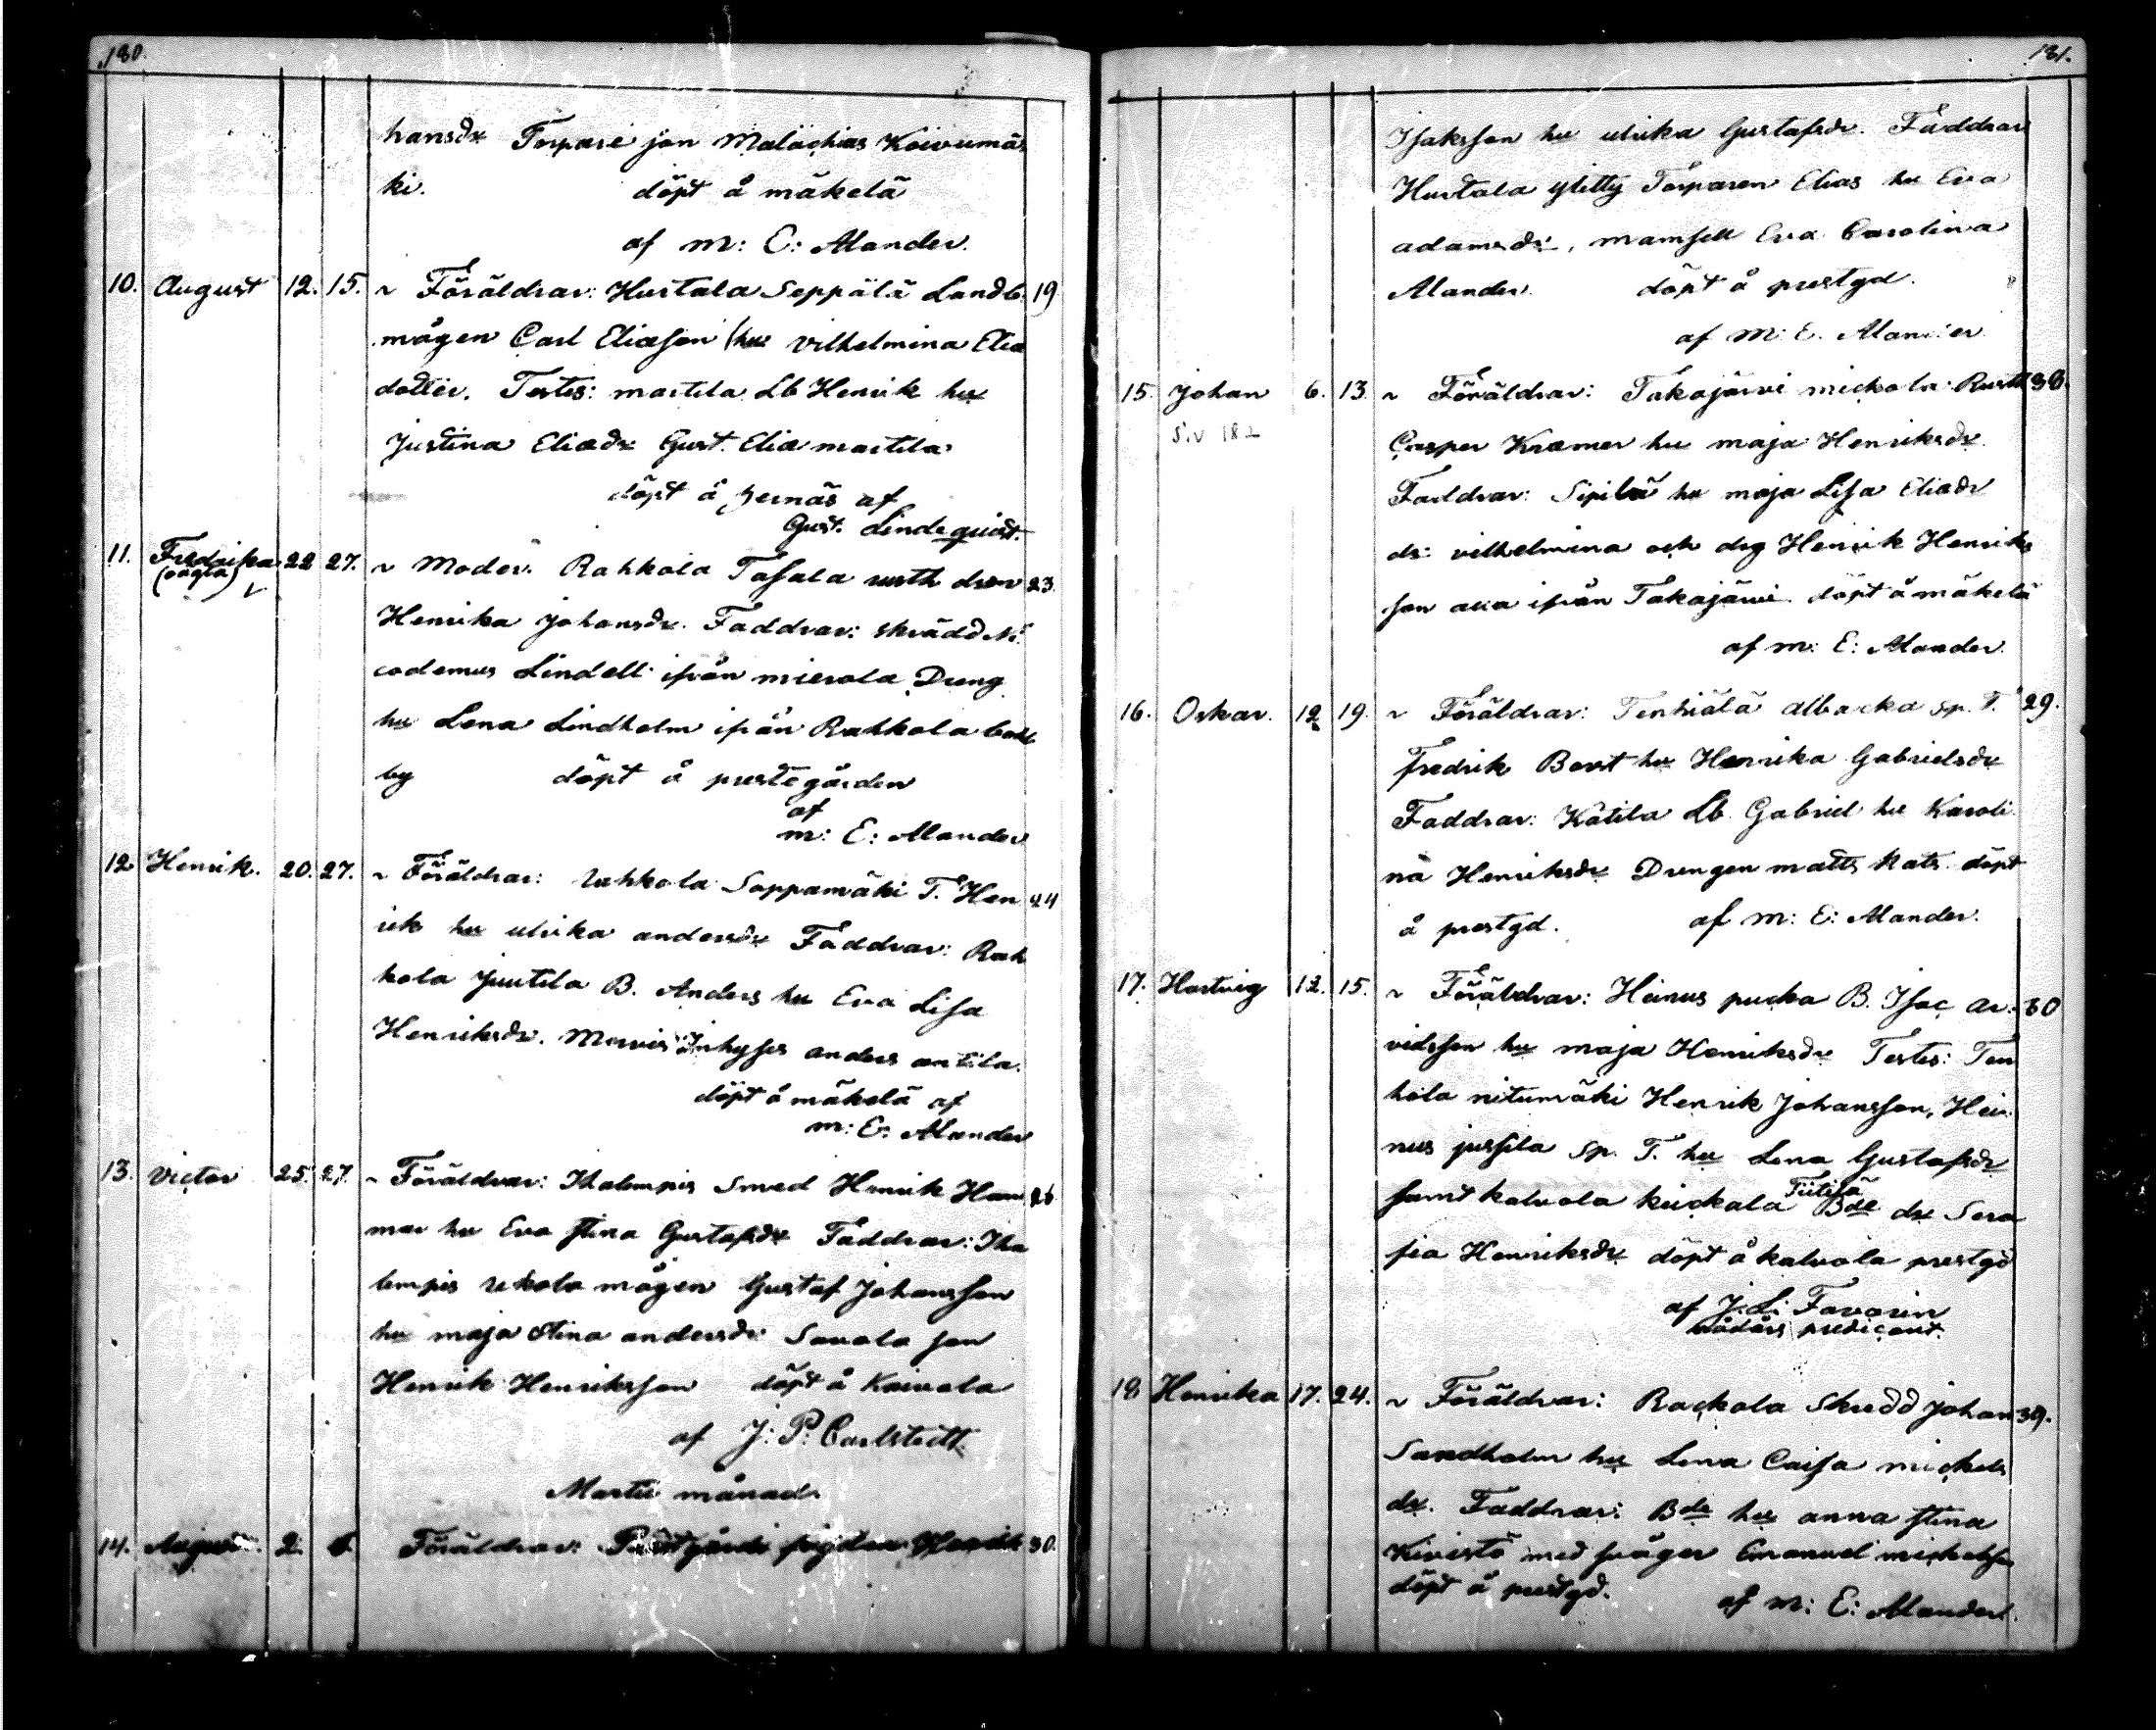 180.
hansdr Torpare son Malachias Koivumäs
ki. döpt å mäkelä
af M: E: Alander.
10. August 12. 15. ~ Föräldrar: Hurtala Seppälä Landb. 19
mågen Carl Eliasson hu Vilhelmina Elia
dotter. Testes: martila Lb Henrik hu
Justina Eliadr Gust. Elia martila
döpt å Jernäs af
Gust. Lindequist.
11. Fredrika 22 27. ~ Moder: Rahkola Tasala rusth dren 23.
(oägta)
Henrika Johansdr. Faddrar: skrädd Ni
codemus Lindell ifrån mierola Dreng
hu Lena Lindholm ifrån Rahkola back
by döpt å prestegården
af
m: E: Alander
12 Henrik. 20. 27. ~ Föräldrar: Rahkola Soppamäki T. Hen 24
rik hu ulrika andersdr Faddrar: Rah
kola Juutila B. Anders hu Eva Lisa
Henriksdr. Inhyses anders antila.
döpt å mäkelä af
m: E: Alander
13. Victor 25. 27. ~ Föräldrar: Ihalempis Smed Henrik Ham 26
mar hu Eva Stina Gustafsdr Faddrar: Iha
lempis ukola mågen Gustaf Johansson
hu maja Stina andersdr Savola son
Henrik Henriksson döpt å Koivola
af J: P: Carlstedt
Martii månad.
14. August. 2. 6. Föräldrar: Henrik 30.
181.
Isaksson hu ulrika Gustafsdr. Faddrar
Hurtala ylitty Torparen Elias hu Eva
adamsdr, mamsell Eva Carolina
Alander. döpt å prestgd.
af M: E. Alander
15. Johan 6. 13. ~ Föräldrar: Takajärvi mickola Rusth 38.
S:v 182
Casper Kræmer hu maja Henriksdr.
Faddrar: Sipilä hu maja Lisa Eliadr
dr: vilhelmina och drg Henrik Henriks
son alla ifrån Takajärvi döpt å mäkelä
af m: E: Alander.
16. Oskar. 12 19. ~ Föräldrar: Tenhiälä albacka sp. T. 29.
fredrik Berit hu Henrika Gabrielsdr
Faddrar: Katila Lb. Gabriel hu Karoli
na Henriksdr Drengen matts Mats. döpt
å prestgd. af m: E: Alander.
17. Hartvig 12. 15. ~ Föräldrar: Heinus pucka B. Isac Ar- 30
vidsson hu maja Henriksdr Testes: Ten
hola nitumäki Henrik Johansson, Hei
nus jussila sp. T. hu Lena Gustafsdr
samt kalvola keickala Tiitisä Bde dr Sera
fia Henriksdr döpt å kalvola prestgd
af J: L: Favorin
nådårs predicant.
18 Henrika 17. 24. ~ Föräldrar: Rackola Skrädd Johan 39.
Sandholm hu Lena Caisa mickels
dr. Faddrar: Bde hu anna stina
Kivistö med svåger Emanuel mickelsson
döpt å prestgd. af m: E: Alander.